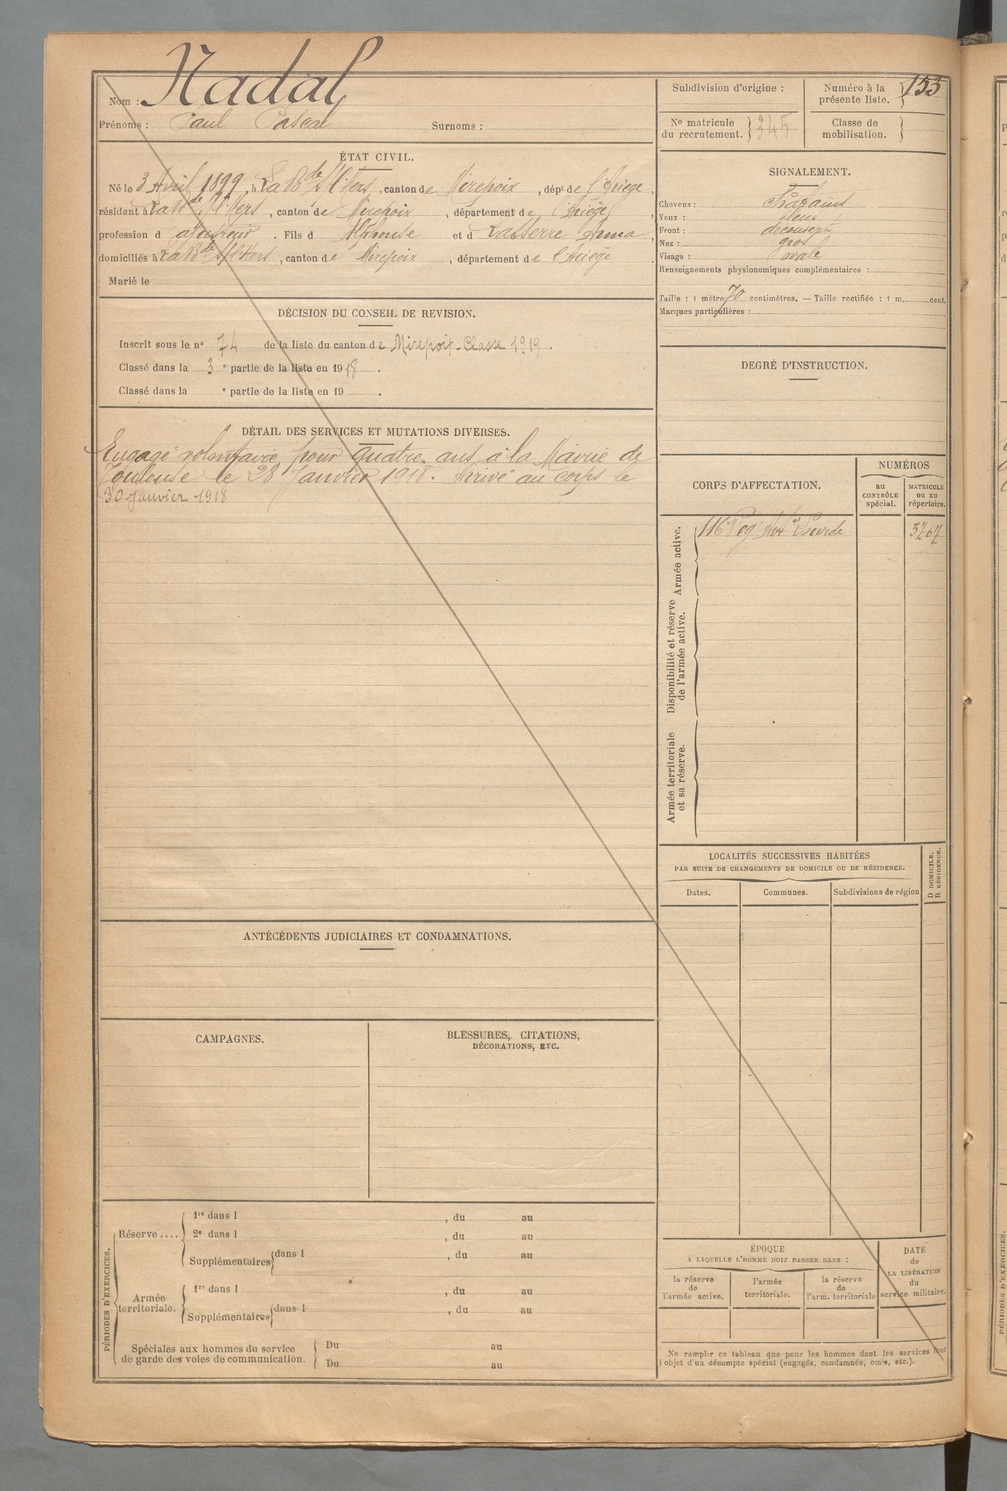 Nom : Nadal
Prénoms : Paul Pascal Surnoms :
ÉTAT CIVIL.
Né le 3 Avril 1899, à La B.de de l'Hers, canton de Mirepoix, dép.t de l'Ariège,
résidant à La B.de de l'Hers, canton de Mirepoix, département de l'Ariège,
profession d . Fils d Alphonse et d Lasserre Anna,
domiciliés à La B.de de l'Hers, canton de Mirepoix, département de l'Ariège
Marié le
DÉCISION DU CONSEIL DE REVISION.
Inscrit sous le n° 74 de la liste du canton de Mirepoix - Classe 1919.
Classé dans la 3 e partie de la liste en 1918.
Classé dans la e partie de la liste en 19 .
DÉTAIL DES SERVICES ET MUTATIONS DIVERSES.
Engagé volontaire pour quatre ans à la Mairie de
Toulouse le 28 Janvier 1918. Arrivé au corps le
30 janvier 1918
ANTÉCÉDENTS JUDICIAIRES ET CONDAMNATIONS.
CAMPAGNES.
BLESSURES, CITATIONS,
DÉCORATIONS, ETC.
PÉRIODES D'EXERCICES.
Réserve ....
1re dans l , du au
2e dans l , du au
Supplémentaires dans l , du au
Armée territoriale.
1re dans l , du au
Supplémentaires dans l , du au
Spéciales aux hommes du service
de garde des voies de communication.
Du au
Du au
Subdivision d'origine :
Numéro à la
présente liste. 153
No matricule
du recrutement. 345
Classe de
mobilisation.
SIGNALEMENT.
Cheveux : châtains
Yeux : bleus
Front : découvert
Nez : gros
Visage : ovale
Renseignements physionomiques complémentaires :
Taille : 1 mètre 70 centimètres. — Taille rectifiée : 1 m. cent.
Marques particulières :
DEGRÉ D'INSTRUCTION.
CORPS D'AFFECTATION.
NUMÉROS
au
CONTRÔLE
spécial.
MATRICULE
ou au
répertoire.
Armée active.
116 Reg. Art.ie Lourde 5767
Disponibilité et réserve
de l'armée active.
Armée territoriale
et sa réserve.
LOCALITÉS SUCCESSIVES HABITÉES
PAR SUITE DE CHANGEMENTS DE DOMICILE OU DE RÉSIDENCE.
D DOMICILE.
R RÉSIDENCE.
Dates. Communes. Subdivisions de région
ÉPOQUE
A LAQUELLE L'HOMME DOIT PASSER DANS :
la réserve
de
l'armée active.
l'armée
territoriale.
la réserve
de
l'arm. territoriale
DATE
de
LA LIBÉRATION
du
service militaire.
Ne remplir ce tableau que pour les hommes dont les services font
l'objet d'un décompte spécial (engagés, condamnés, omis, etc.).
PÉRIODES D'EXERCICES.